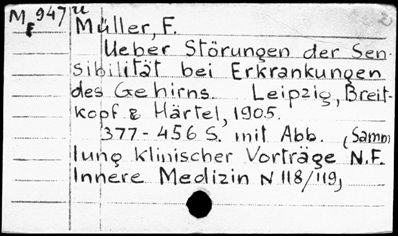 MF 947 u
Müller, F.
Ueber Störungen der Sen-
sibilität bei Erkrankungen
des Gehirns. Leipzig, Breit-
kopf & Härtel, 1905.
377-456 S. mit Abb. (Samm
lung klinischer Vorträge N.F.
Innere Medizin N 118/119,